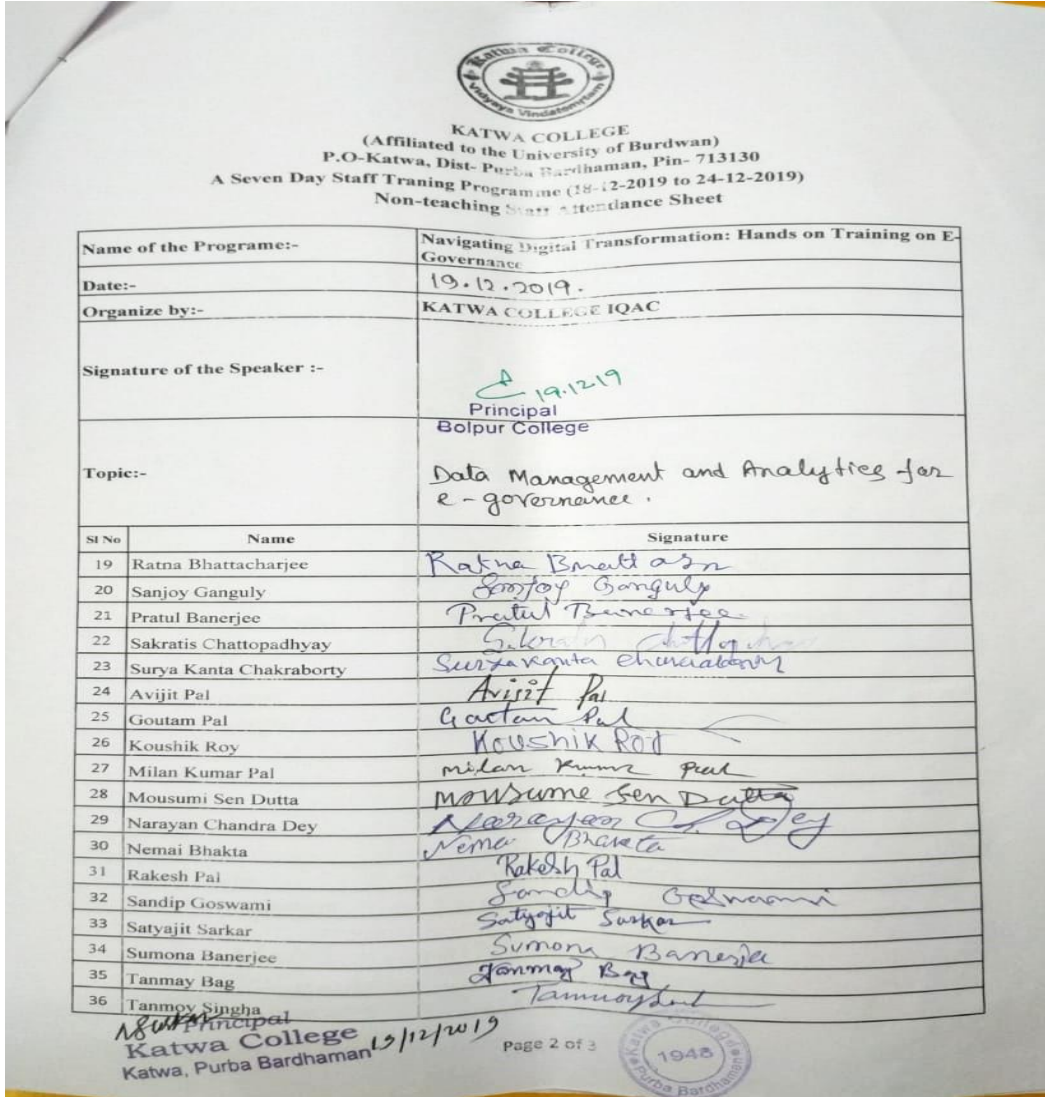 Katwa College
Vidyaya Vindatemrtam
KATWA COLLEGE
(Affiliated to the University of Burdwan)
P.O-Katwa, Dist- Purba Bardhaman, Pin- 713130
A Seven Day Staff Traning Programme (18-12-2019 to 24-12-2019)
Non-teaching Staff Attendance Sheet
Name of the Programe:- Navigating Digital Transformation: Hands on Training on E-
Governance
Date:- 19.12.2019.
Organize by:- KATWA COLLEGE IQAC
Signature of the Speaker :-
19.12.19
Principal
Bolpur College
Topic:- Data Management and Analytics for
e-governance.
Sl No Name Signature
19 Ratna Bhattacharjee Ratna
20 Sanjoy Ganguly Sanjoy Ganguly
21 Pratul Banerjee Pratul Banerjee
22 Sakratis Chattopadhyay
23 Surya Kanta Chakraborty Suryakanta
24 Avijit Pal Avijit Pal
25 Goutam Pal Pal
26 Koushik Roy Koushik Roy
27 Milan Kumar Pal Milan Kumar Paul
28 Mousumi Sen Dutta Mousume Sen Dutta
29 Narayan Chandra Dey Narayan Ch. Dey
30 Nemai Bhakta Nemai Bhakta
31 Rakesh Pal Rakesh Pal
32 Sandip Goswami Sandip Goswami
33 Satyajit Sarkar Satyajit Sarkar
34 Sumona Banerjee Sumona Banerjee
35 Tanmay Bag Tanmay Bag
36 Tanmoy Singha
Principal
Katwa College 19/12/2019
Katwa, Purba Bardhaman
Page 2 of 3
Katwa College
1948
Purba Bardhaman